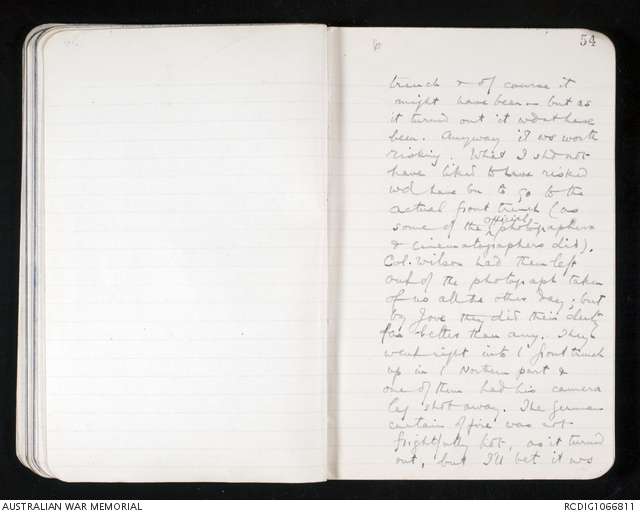 6
54
trench & of course it
might have been – but as
it turned out it wd not have
been. Anyway it ws worth
risking. What I shd not
have liked to have risked
wd have bn to go to the
actual front trench (as
some of the official photographers
& cinematographers did).
Col. Wilson had them left
out of the photograph taken
of us all the other day; but
by Jove they did their duty
far better than any. They
went right into / front trench
up in / Northern part &
one of them had his camera
leg shot away. The German
curtain of fire was not
frightfully hot, as it turned
out, but I'll bet it ws
AUSTRALIAN WAR MEMORIAL
RCDIG1066811